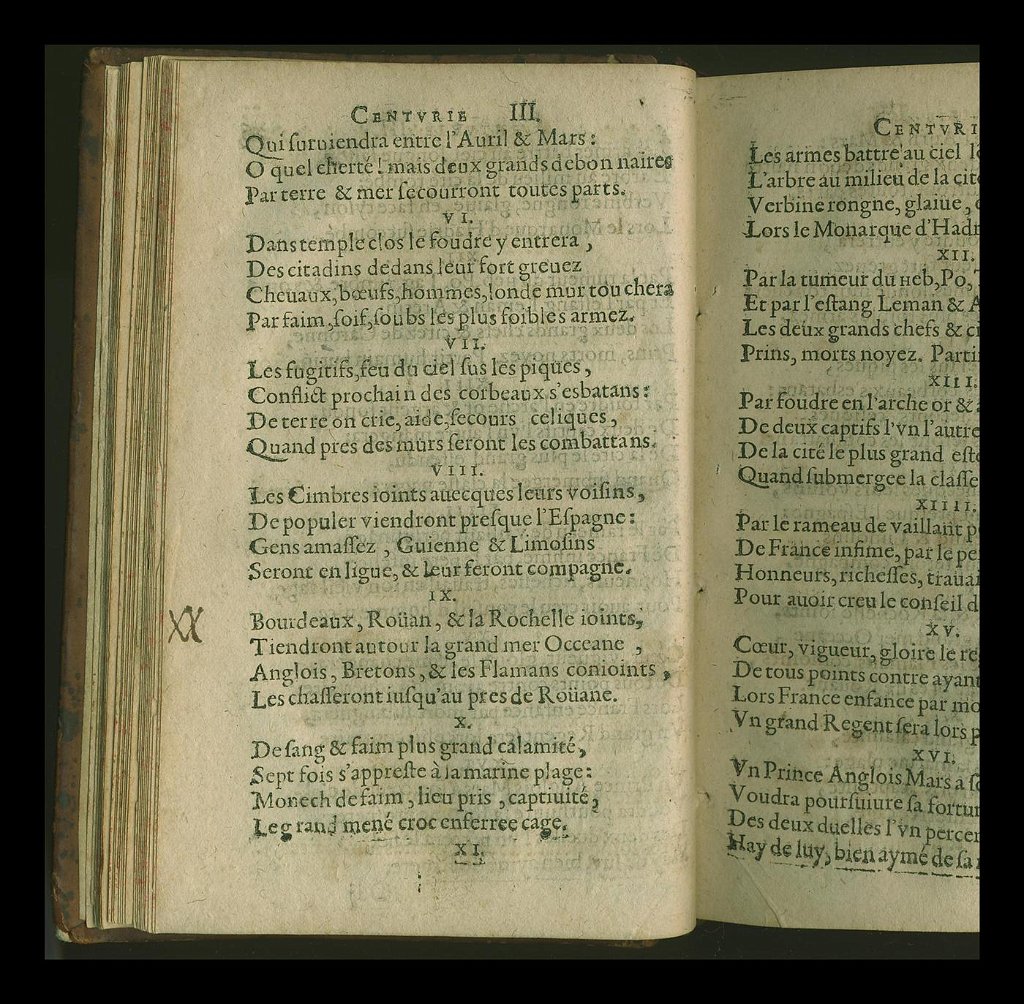 CENTVRIE III.
Qui ſuruiendra entre l'Auril & Mars:
O quel cherté! mais deux grands debon naires
Par terre & mer ſecourront toutes parts.
VI.
Dans temple clos le foudre y entrera,
Des citadins dedans leur fort greuez
Cheuaux, bœufs, hommes, londe mur tou chera
Par faim, ſoif, ſoubs les plus foibles armez.
VII.
Les fugitifs, feu du ciel ſus les piques,
Conflict prochain des corbeaux s'esbatans:
De terre on crie, aide, ſecours celiques,
Quand pres des murs ſeront les combattans.
VIII.
Les Cimbres ioints auecques leurs voiſins,
De populer viendront preſque l'Eſpagne:
Gens amaſſez, Guienne & Limoſins
Seront en ligue, & leur feront compagne.
IX.
XX
Bourdeaux, Roüan, & la Rochelle ioints,
Tiendront autour la grand mer Occeane,
Anglois, Bretons, & les Flamans conioints,
Les chaſſeront iuſqu'au pres de Roüane.
X.
De ſang & faim plus grand calamité,
Sept fois s'appreſte à la marine plage:
Monech de faim, lieu pris, captiuité,
Le grand mené croc enferree cage.
XI.
CENTVRI
Les armes battre au ciel
L'arbre au milieu de la cit
Verbine rongne, glaiue,
Lors le Monarque d'Hadr
XII.
Par la tumeur du HEb, Po,
Et par l'eſtang Leman & A
Les deux grands chefs & ci
Prins, morts noyez. Parti
XIII.
Par foudre en l'arche or &
De deux captifs l'vn l'autre
De la cité le plus grand eſte
Quand ſubmergee la claſſe
XIIII.
Par le rameau de vaillant p
De France infime, par le pe
Honneurs, richeſſes, trauai
Pour auoir creu le conſeil d
XV.
Cœur, vigueur, gloire le re
De tous points contre ayant
Lors France enfance par mo
Vn grand Regent ſera lors p
XVI.
Vn Prince Anglois Mars a ſo
Voudra pourſuiure ſa fortun
Des deux duelles l'vn percer
Hay de luy, bien aymé de ſa